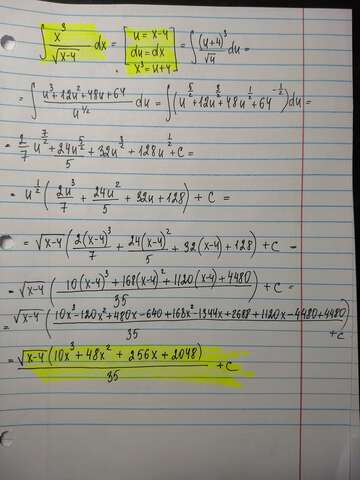 ∫ x³/√(x-4) dx = [ u = x-4
du = dx
x³ = u+4 ] = ∫ (u+4)³/√u du =
= ∫ (u³+12u²+48u+64)/u^(1/2) du = ∫ (u^(5/2) + 12u^(3/2) + 48u^(1/2) + 64^(-1/2)) du =
= 2/7 u^(7/2) + 24u^(5/2)/5 + 32u^(3/2) + 128u^(1/2) + C =
= u^(1/2) (2u³/7 + 24u²/5 + 32u + 128) + C =
= √(x-4) (2(x-4)³/7 + 24(x-4)²/5 + 32(x-4) + 128) + C =
= √(x-4) ((10(x-4)³ + 168(x-4)² + 1120(x-4) + 4480)/35) + C =
= √(x-4) ((10x³-120x²+480x-640+168x²-1344x+2688+1120x-4480+4480)/35) + C
= √(x-4) (10x³ + 48x² + 256x + 2048)/35 + C